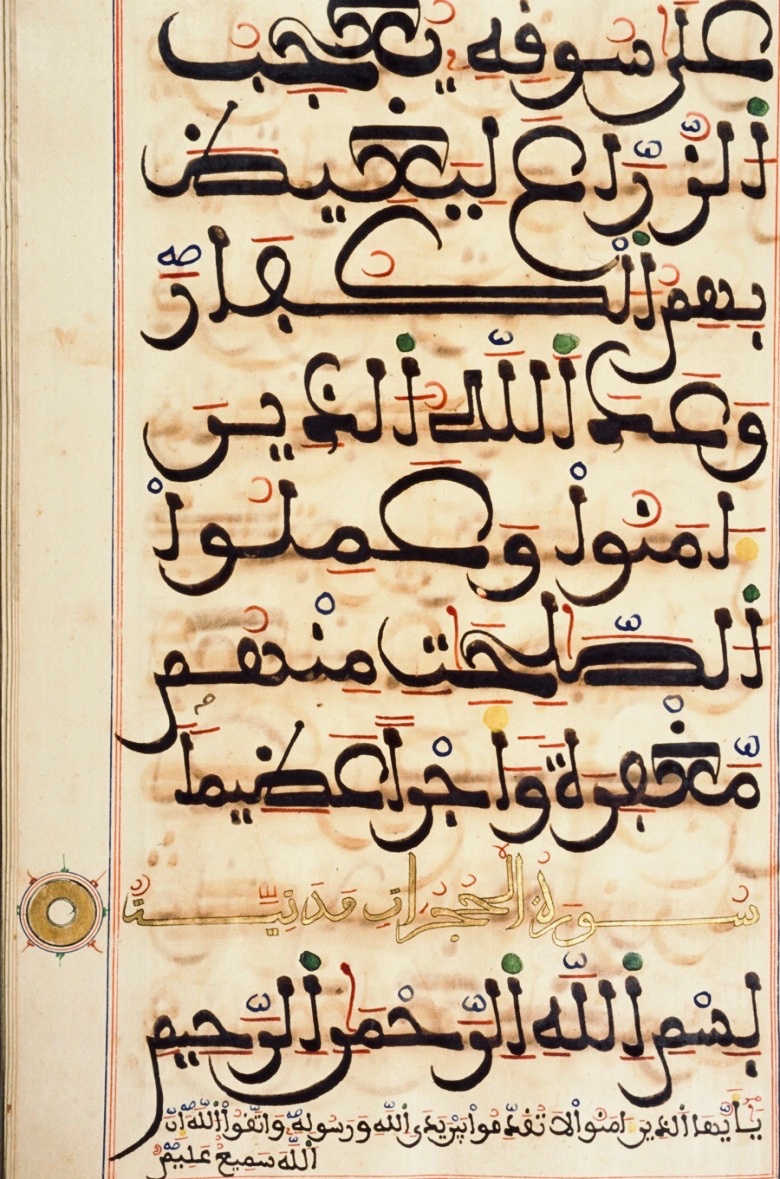 عَلَىٰ سُوفِهِۦ يُعْجِبُ
اُ۬لزُّرَّاعَ لِيَغِيضَ
بِهِمُ اُ۬لْكُفَّارَّ
وَعَدَ اَ۬للَّهُ اُ۬لذِينَ
ءَامَنُواْ وَعَمِلُواْ
اُ۬لصَّٰلِحَٰتِ مِنْهُم
مَّغْفِرَةٗ وَأَجْراً عَضِيماً
سورة الحجرات مدنية
بِسْمِ اِ۬للَّهِ اِ۬لرَّحْمَٰنِ اِ۬لرَّحِيمِ
يَٰأَيُّهَا اَ۬لذِينَ ءَامَنُواْ لَا تُقَدِّمُواْ بَيْنَ يَدَيِ اِ۬للَّهِ وَرَسُولِهِۦ وَاتَّقُواْ اُ۬للَّهَ إِنَّ
اَ۬للَّهَ سَمِيعٌ عَلِيمٌ